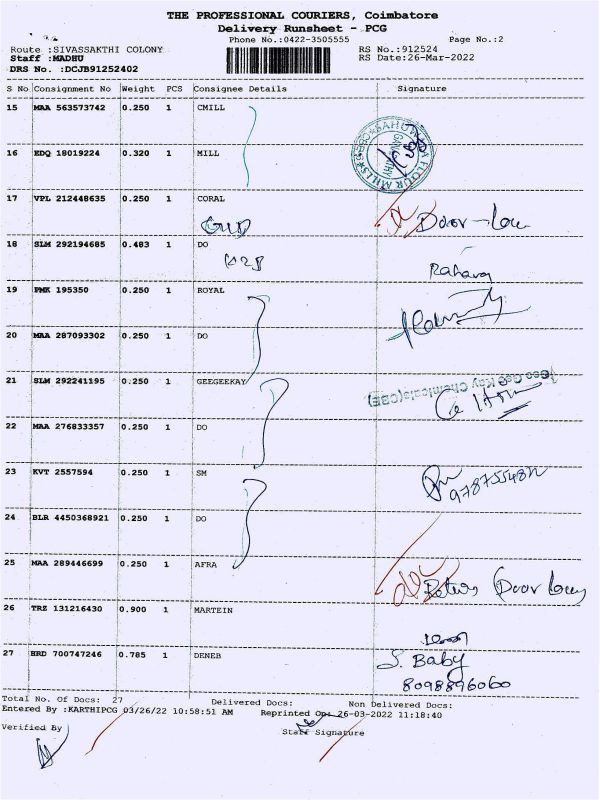 THE PROFESSIONAL COURIERS, Coimbatore
Delivery Runsheet - PCG
Phone No.:0422-3505555 Page No.:2
Route :SIVASSAKTHI COLONY RS No.:912524
Staff :MADHU RS Date:26-Mar-2022
DRS No. :DCJB91252402
S No Consignment No Weight PCS Consignee Details Signature
15 MAA 563573742 0.250 1 CMILL
16 EDQ 18019224 0.320 1 MILL
FLOUR MILLS
17 VPL 212448635 0.250 1 CORAL
Door-
18 SLM 292194685 0.483 1 DO
19 PMK 195350 0.250 1 ROYAL
20 MAA 287093302 0.250 1 DO
21 SLM 292241195 0.250 1 GEEGEEKAY
Gee Gee Kay Chemicals(CBE)
22 MAA 276833357 0.250 1 DO
23 KVT 2557594 0.250 1 SM
24 BLR 4450368921 0.250 1 DO
25 MAA 289446699 0.250 1 AFRA
Door
26 TRZ 131216430 0.900 1 MARTEIN
27 HRD 700747246 0.785 1 DENEB
S. Baby
8098896060
Total No. Of Docs: 27 Delivered Docs: Non Delivered Docs:
Entered By :KARTHIPCG 03/26/22 10:58:51 AM Reprinted On: 26-03-2022 11:18:40
Verified By Staff Signature